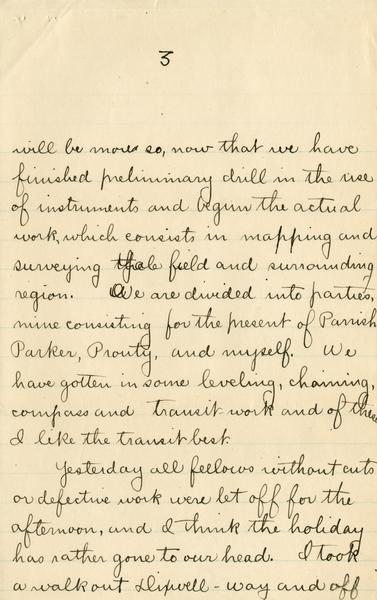 3
will be more so, now that we have
finished preliminary drill in the use
of instruments and begun the actual
work, which consists in mapping and
surveying the field and surrounding
region. We are divided into parties,
mine consisting for the present of Parrish
Parker, Prouty, and myself. We
have gotten in some leveling, chaining,
compass and transit work and of these
I like the transit best.
Yesterday all fellows without cuts
or defective work were let off for the
afternoon, and I think the holiday
has rather gone to our head. I took
a walk out - way and off